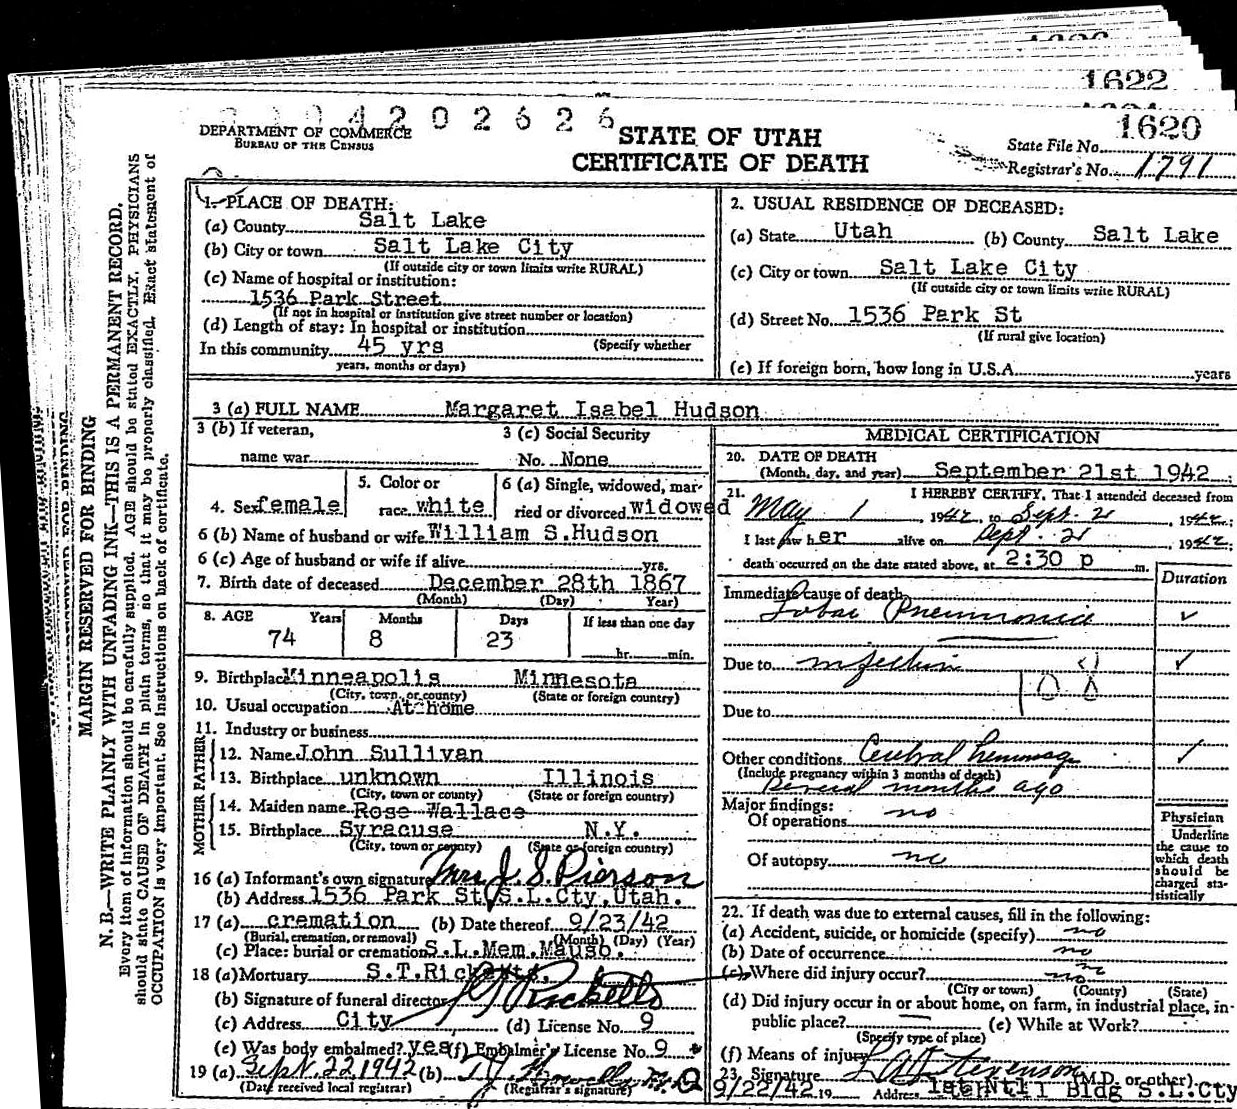 1622
3 0 0 4 2 0 2 6 2 6
1620
DEPARTMENT OF COMMERCE
BUREAU OF THE CENSUS
STATE OF UTAH
CERTIFICATE OF DEATH
State File No.
Registrar's No. 1791
MARGIN RESERVED FOR BINDING
N. B.—WRITE PLAINLY WITH UNFADING INK—THIS IS A PERMANENT RECORD.
Every item of information should be carefully supplied. AGE should be stated EXACTLY. PHYSICIANS
should state CAUSE OF DEATH in plain terms, so that it may be properly classified. Exact statement of
OCCUPATION is very important. See instructions on back of certificate.
1. PLACE OF DEATH:
(a) County Salt Lake
(b) City or town Salt Lake City
(If outside city or town limits write RURAL)
(c) Name of hospital or institution:
1536 Park Street
(If not in hospital or institution give street number or location)
(d) Length of stay: In hospital or institution
In this community 45 yrs (Specify whether
years, months or days)
2. USUAL RESIDENCE OF DECEASED:
(a) State Utah (b) County Salt Lake
(c) City or town Salt Lake City
(If outside city or town limits write RURAL)
(d) Street No. 1536 Park St
(If rural give location)
(e) If foreign born, how long in U.S.A. years
3 (a) FULL NAME Margaret Isabel Hudson
3 (b) If veteran,
name war
3 (c) Social Security
No. None
4. Sex female
5. Color or
race white
6 (a) Single, widowed, mar-
ried or divorced widowed
6 (b) Name of husband or wife William S.Hudson
6 (c) Age of husband or wife if alive yrs.
7. Birth date of deceased December 28th 1867
(Month) (Day) Year)
8. AGE Years Months Days If less than one day
74 8 23 hr. min.
9. Birthplace Minneapolis Minnesota
(City, town, or county) (State or foreign country)
10. Usual occupation At home
11. Industry or business
FATHER
12. Name John Sullivan
13. Birthplace unknown Illinois
(City, town or county) (State or foreign country)
MOTHER
14. Maiden name Rose Wallace
15. Birthplace Syracuse N.Y.
(City, town or county) (State or foreign country)
16 (a) Informant's own signature Mrs J. S. Pierson
(b) Address 1536 Park St, S.L.Cty,Utah.
17 (a) cremation (b) Date thereof 9/23/42
(Burial, cremation, or removal) (Month) (Day) (Year)
(c) Place: burial or cremation S.L.Mem.Mauso.
18 (a) Mortuary S.T.Ricketts.
(b) Signature of funeral director Ricketts
(c) Address City (d) License No. 9
(e) Was body embalmed? yes (f) Embalmer's License No. 9
19 (a) Sept. 22 1942 (b) M.D.
(Date received local registrar) (Registrar's signature)
MEDICAL CERTIFICATION
20. DATE OF DEATH
(Month, day, and year) September 21st 1942
21. I HEREBY CERTIFY, That I attended deceased from
May 1, 1942, to Sept. 21, 1942;
I last saw her alive on Sept. 21, 1942;
death occurred on the date stated above, at 2:30 p m.
Duration
Immediate cause of death
Lobar Pneumonia ✓
Due to infection ✓
108
Due to
Other conditions Cerebral hemorrage ✓
(Include pregnancy within 3 months of death)
several months ago
Major findings:
Of operations no
Of autopsy no
Physician
Underline
the cause to
which death
should be
charged sta-
tistically
22. If death was due to external causes, fill in the following:
(a) Accident, suicide, or homicide (specify) no
(b) Date of occurrence no
(c) Where did injury occur? no
(City or town) (County) (State)
(d) Did injury occur in or about home, on farm, in industrial place, in-
public place? (e) While at Work?
(Specify type of place)
(f) Means of injury
23. Signature Stevenson (M.D. or other)
9/22/42 19 Address 1st Nt'l Bldg S.L.Cty